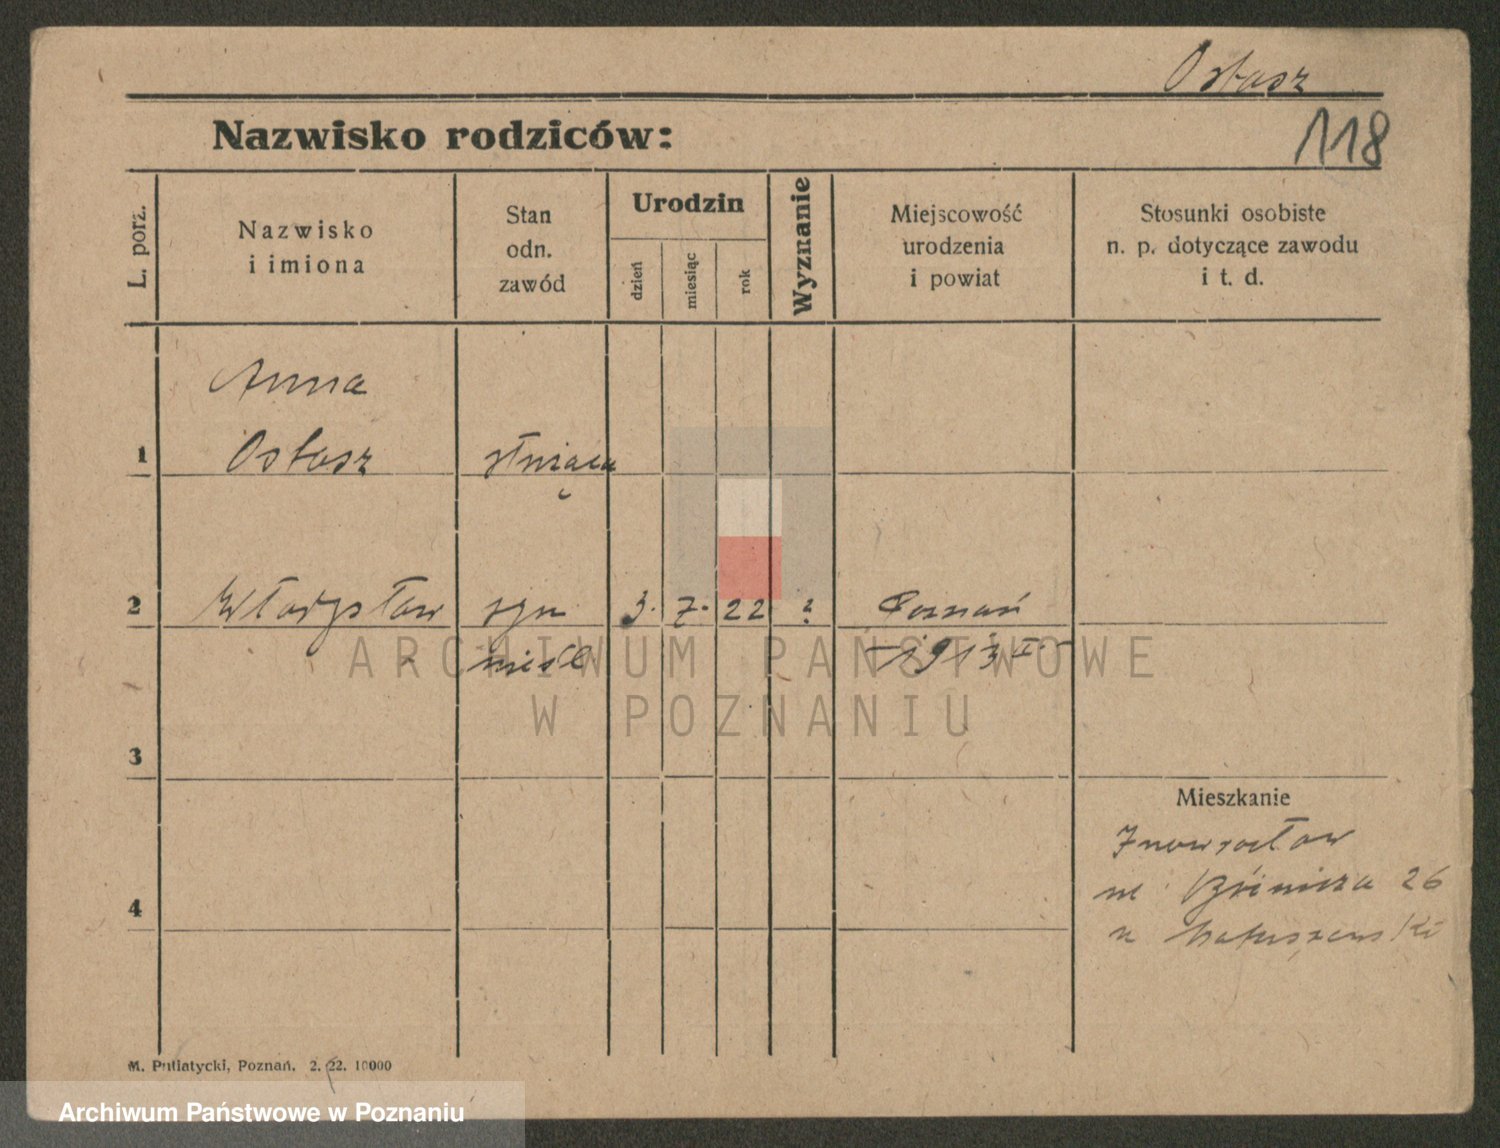 Ostasz
118
Nazwisko rodziców:
L. porz.
Nazwisko
i imiona
Stan
odn.
zawód
Urodzin
dzień
miesiąc
rok
Wyznanie
Miejscowość
urodzenia
i powiat
Stosunki osobiste
n. p. dotyczące zawodu
i t. d.
Anna
1 Ostasz służąca
2 Władysław syn 3. 7. 22 ? Poznań
nieśl
ARCHIWUM PAŃSTWOWE
W POZNANIU
3
Mieszkanie
Inowrocław
26
4
u
M. Putiatycki, Poznań, 2. 22. 10000
Archiwum Państwowe w Poznaniu